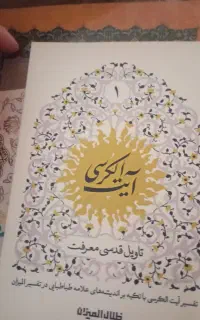 ۱
آیت الکرسی
تاویل قدسی معرفت
تفسیر آیت الکرسی با تکیه بر اندیشه‌های علامه طباطبایی در تفسیر المیزان
ظلال المیزان